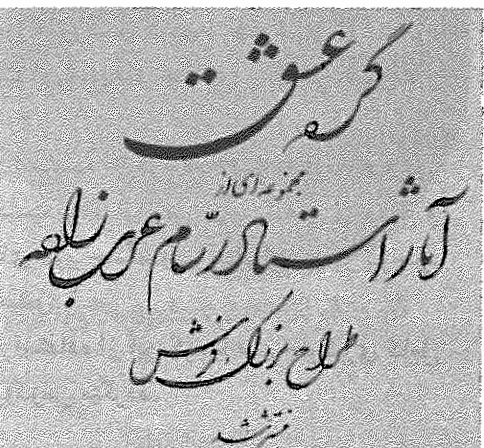 گره عشق
مجموعه ای از
آثار استاد رسّام عرب زاده
طراح بزرگ فرش
منتشر شد